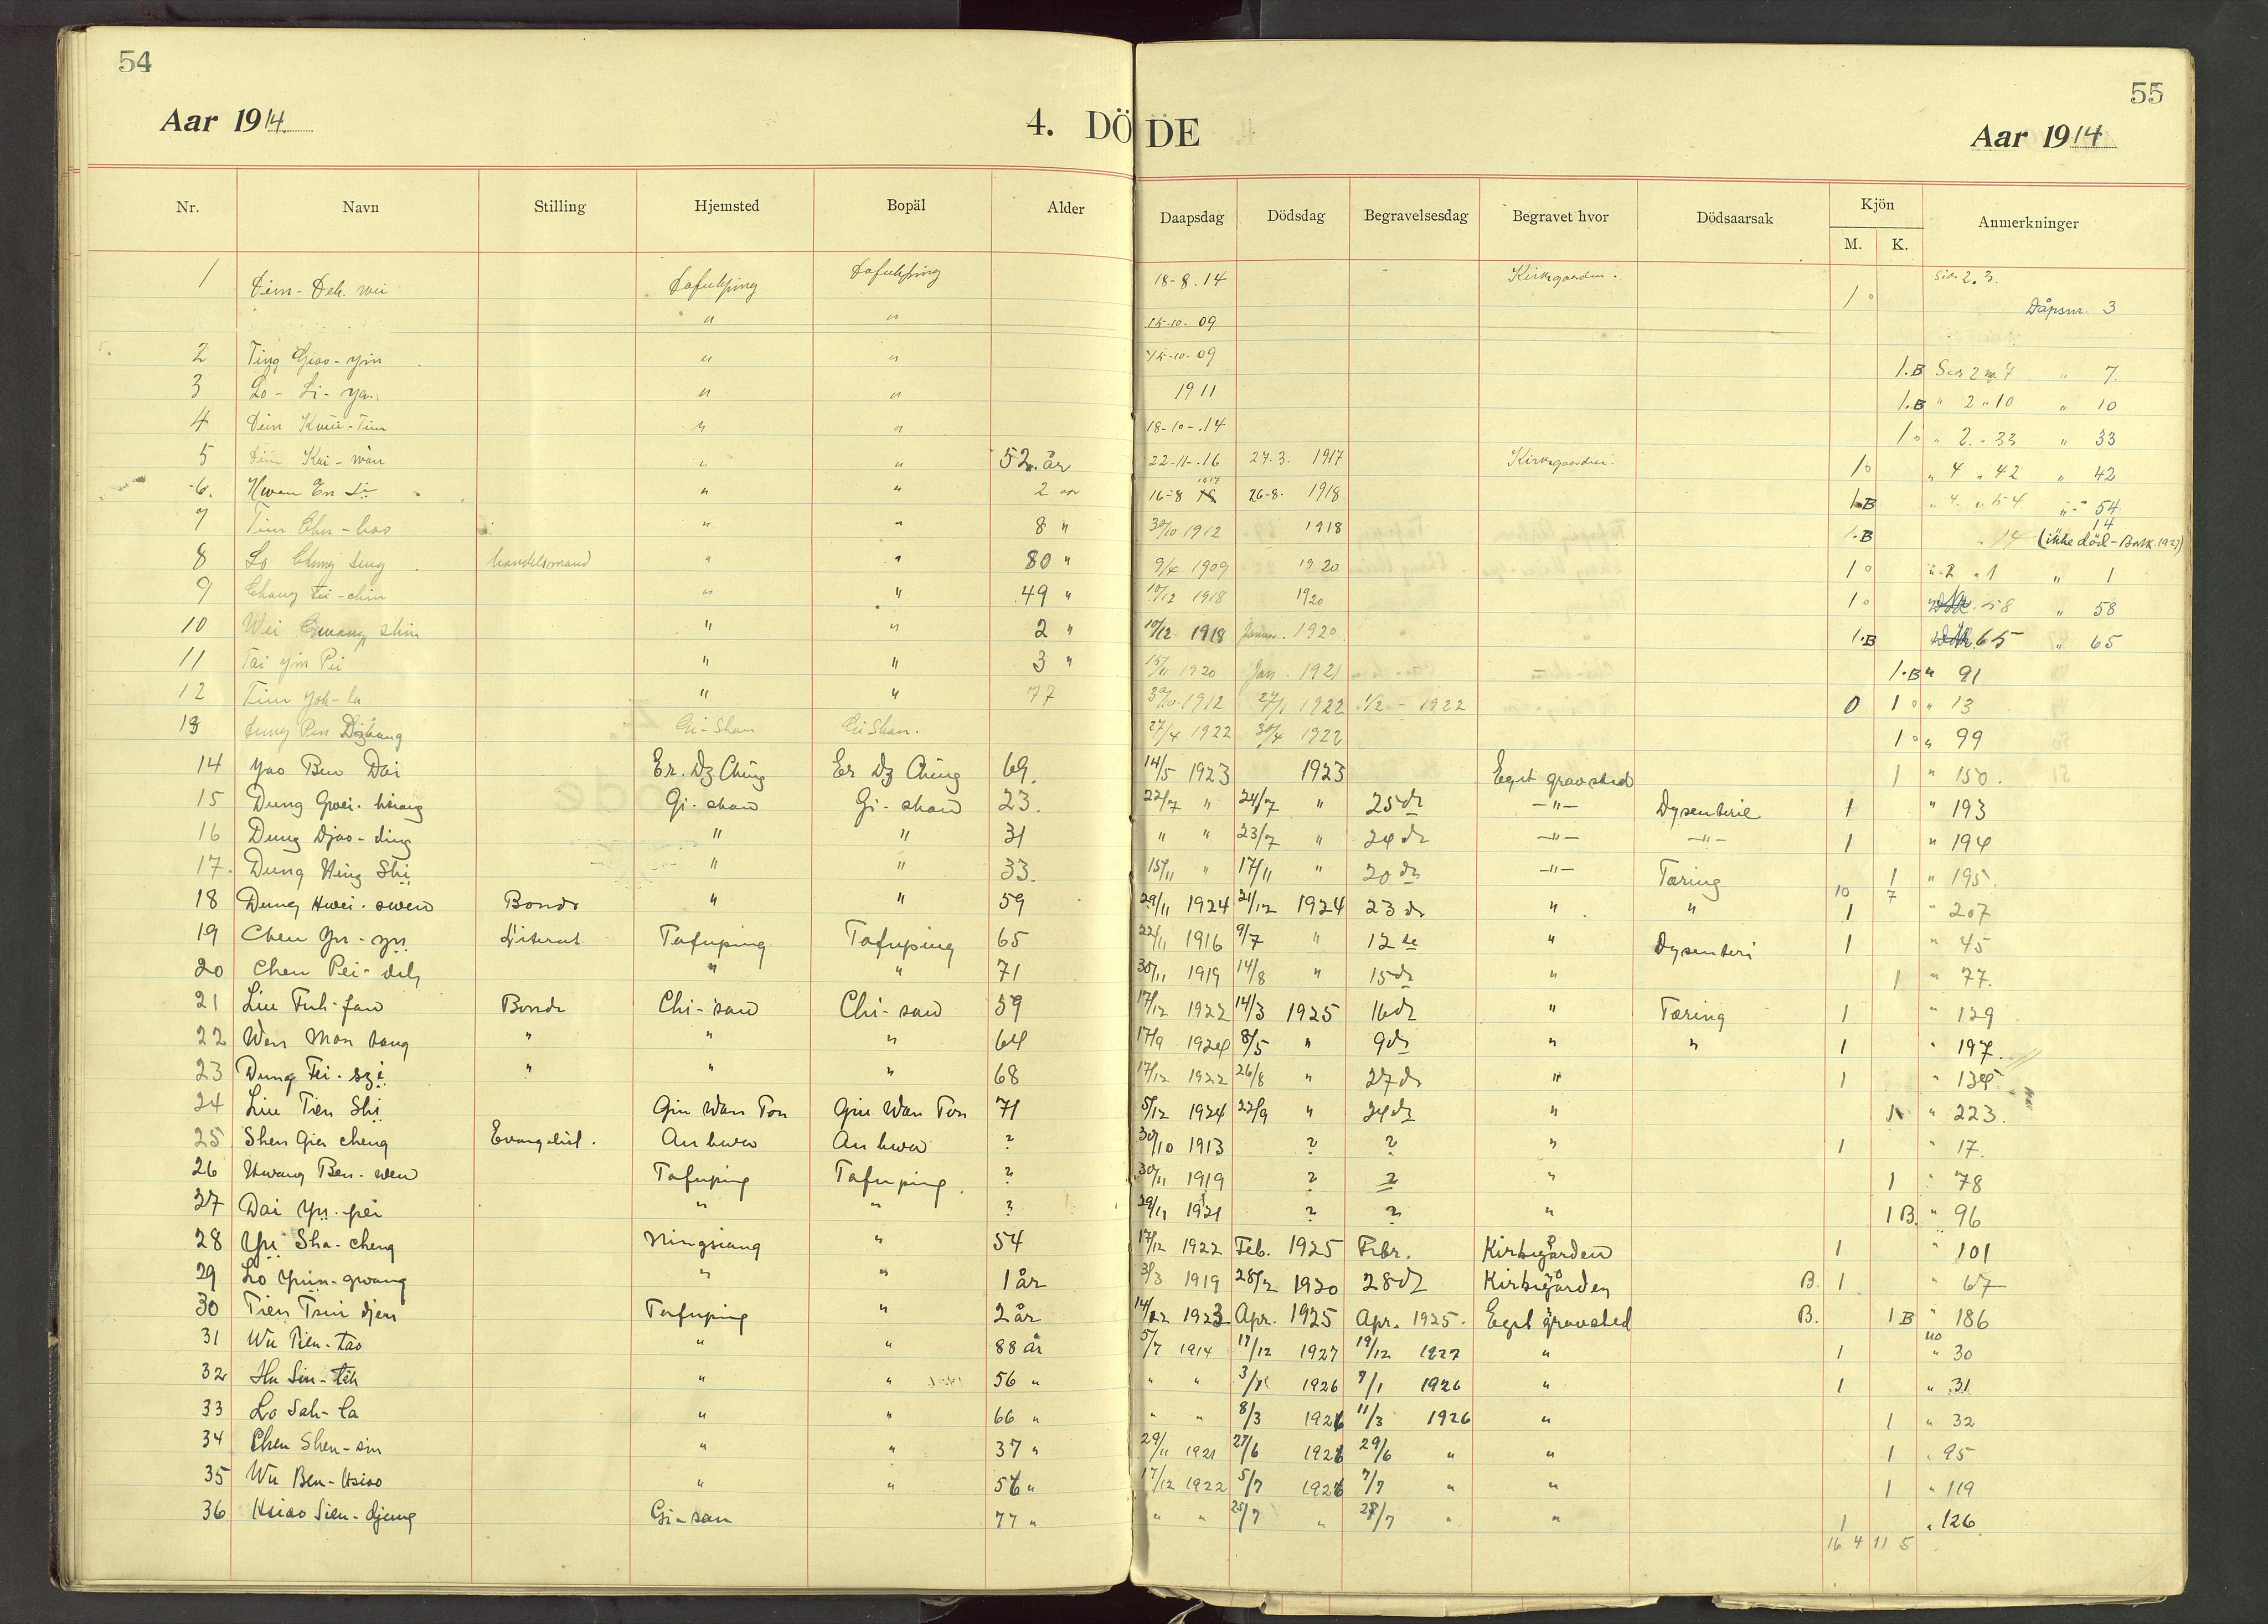 54
55
Aar 1914
4. DÖDE
Aar 1914
Nr. Navn Stilling Hjemsted Bopäl Alder Daapsdag Dödsdag Begravelsesdag Begravet hvor Dödsaarsak Kjön M. K. Anmerkninger
1 Tafuhping Tafuhping 18-8.14 Kirkegaarden. 1 2.3. Dåpsnr. 3
" " 15-10-09
2 Ting Giao-yin " " 15-10-09 1.B 2 nr. 7 " 7.
3 Lo-Li-ya. " " 1911 1.B " 2 " 10 " 10
4 " " 18-10-.14 1 " 2. " 33 " 33
5 Kai-wan " " 52. år 22-11-.16 27.3. 1917 Kirkegaarden. 1 " 4 " 42 " 42
6. Hwan En Li " " 2 år 16-8 1917 26-8- 1918 1.B " 4. " 54. " 54
7 Tim Chu-hao " " 8 " 30/10 1912 1918 1.B " 14 14 (ikke död - 1923)
8 Lo Ching seng handelsmand " " 80 " 9/4 1909 1920 1 " 2 " 1 " 1
9 Chang Tei-chin " " 49 " 10/12 1918 1920 1 58 " 58
10 Wei Gwang shin " " 2 " 10/12 1918 Januar. 1920 1.B 65 " 65
11 Tai yin Pei " " 3 " 15/11 1920 Jan. 1921 1.B " 91
12 Tim yoh-la " " 77 30/10-1912 27/1 1922 1/2 - 1922 0 1 " 13
13 Pen Gi-Shan Gi Shan. 27/4 1922 30/4 1922 1 " 99
14 Yao Ben Dai Er. Dz Ching Er Dz Ching 69. 14/5 1923 1923 Eget gravsted 1 " 150.
15 Dung Gwei-hsiang Gi-shan Gi-shan 23. 22/7 " 24/7 " 25de —"— Dysenterie 1 " 193
16 Dung Djao-ding " " 31 " " 23/7 " 24de —"— —"— 1 " 194
17. Dung Hing Shi " " 33. 15/11 " 17/11 " 20de —"— Tæring 1 " 195.
10 7
18 Dung Hwei-swen Bonde " " 59 29/11 1924 21/12 1924 23de " " 1 " 207
19 Chen Yu-yu Literat Tafuping Tafuping 65 22/11 1916 9/7 " 12te " Dysenteri 1 " 45
20 Chen Pei-deh " " 71 30/11 1919 14/8 " 15de " 1 " 77.
21 Liu Fuh-fan Bonde Chi-san Chi-san 59 17/12 1922 14/3 1925 16de " Tæring 1 " 129
22 Wen Man tang " " " 64 17/9 1924 8/5 " 9de " " 1 " 197.
23 Dung Fei-szi " " " 68 17/12 1922 26/8 " 27de " 1 " 134.
24 Liu Tien Shi Giu Wan Ton Giu Wan Ton 71 5/12 1924 22/9 " 24de " 1 " 223.
25 Shen Gien cheng Evangelist. An hwa An hwa ? 30/10 1913 ? ? " 1 " 17.
26 Hwang Ben-wen Tafuping Tafuping. ? 30/11 1919 ? ? " 1 " 78
27 Dai Yu-pei " " ? 29/11 1921 ? ? " 1 B. " 96
28 Yu Sha-cheng Ningsiang " 54 17/12 1922 Feb. 1925 Febr. Kirkegården 1 " 101
29 Lo Yuin-gwang " " 1 år 31/3 1919 28/2 1920 28de Kirkegården B. 1 " 67
30 Tien Tsui djen Tafuping " 2 år 14/12 1923 Apr. 1925 Apr. 1925. Eget gravsted B. 1 B " 186
31 Wu Tien-tao " " 88 år 5/7 1914 17/12 1927 19/12 1927 " 1 no " 30
32 Hu Sin-teh " " 56 " " " 3/1 1926 7/1 1926 " 1 " 31
33 Lo Sah-la " " 66 " " " 8/3 1926 11/3 1926 " 1 " 32
34 Chen Shen-sin " " 37 " 29/11 1921 27/6 1926 29/6 " " 1 " 95
35 Wu Ben-Hsiao " " 56 " 17/12 1922 5/7 1926 7/7 " " 1 " 119
36 Hsiao Sien-djeng Gi-san 77 " " " 25/7 " 28/7 " " 1 " 126
16 4 11 5